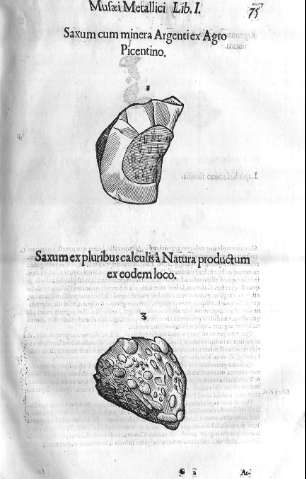 Musæi Metallici Lib. I. 75
Saxum cum minera Argenti ex Agro
Picentino.
Saxum ex pluribus calculis à Natura productum
ex eodem loco.
3